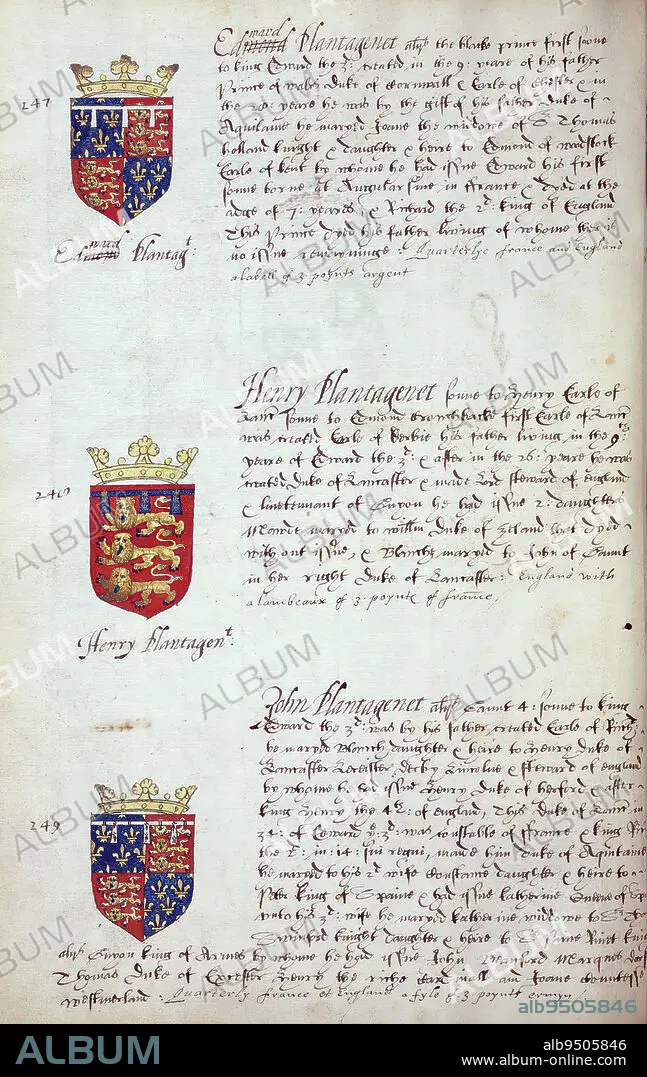 Edmond ward Plantagenet alijs the blacke prince first sonne
to king Edward the 3: created in the 9: yeare of his father
Prince of wales Duke of Cornwall & Earle of Chester & in
the yeare he was by the gift of his father Duke of
Aquitaine he maryed Joane the widowe of S Thomas
Holland knight & daughter & heire to Edmond of woodstock
Earle of Kent by whome he had issue Edward his first
sonne borne at in France & dyed at the
adge of 7: yeares & Richard the 2: king of England
This Prince dyed his father living of whome
no issue remayninge : Quarterlye france and England
a labell of 3 poynts argent
247
Edmond ward Plantagt:
Henry Plantagenet sonne to Henry Earle of
Lanc sonne to Edmond Crouchbacke first Earle of Lanc
was created Earle of Derbie his father living in the 9:
yeare of Edward the 3: & after in the 26: yeare he was
created Duke of Lancaster & made Lord steward of England
& lieuetennant of he had issue 2: daughters
Mawde maryed to willm Duke of that dyed
without issue, & Blanch maryed to John of Gaunt
in her right Duke of Lancaster : England with
a lambeaux of 3 poynts of france,
248
Henry Plantagent:
John Plantagenet alijs Gaunt 4: sonne to king
Edward the 3: was by his father created Earle of Rich
he maryed Blanch daughter & heire to Henry Duke of
Lancaster Leicester, derby Lincolne & steward of England
by whome he had issue Henry Duke of Herford & after
king Henry the 4: of England, This Duke of Lanc in
34: of Edward 3: was constable of France & king Ric
the 2: in :14: sui regni, made him Duke of Aquitaine
he maryed to his 2: wife Constance daughter & heire to
Peter king of Spaine & had issue Katherine Queene of Sp
unto his 3: wife he maryed Katherine, widdowe to S Tho
Swinford knight daughter & heire to knig
alijs Guyon king of Armes by whome he had issue John Beauford Marques Dors
Thomas Duke of Excester Henry the riche Cardinall and Joane Countesse
westmerland : Quarterly france et England a fyle of 3 poynts ermyn
249
ALBUM
alb9505846
ALBUM
alb9505846
www.album-online.com